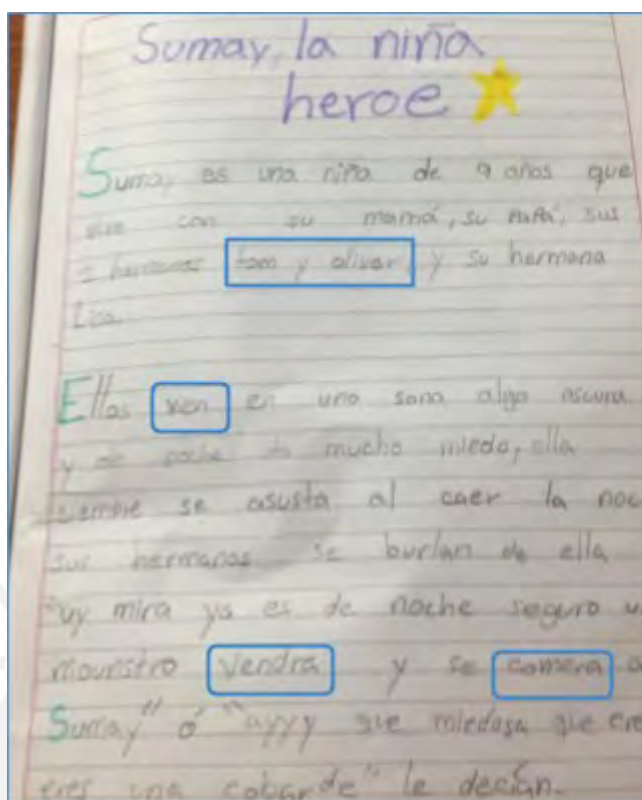 Sumay, la niña
heroe
Sumay es una niña de 9 años que
vive con su mamá, su PAPÁ, sus
2 hermanos tom y oliver y su hermana
Lisa.
Ellos en una algo
y de noche da mucho miedo, ella
siempre se asusta al caer la noc
sus hermanos se burlan de ella
"uy mira ya es de noche seguro u
mounstro vendra y se comera a
Sumay" ó "ayyy que miedosa que ere
eres una cobarde" le decían.